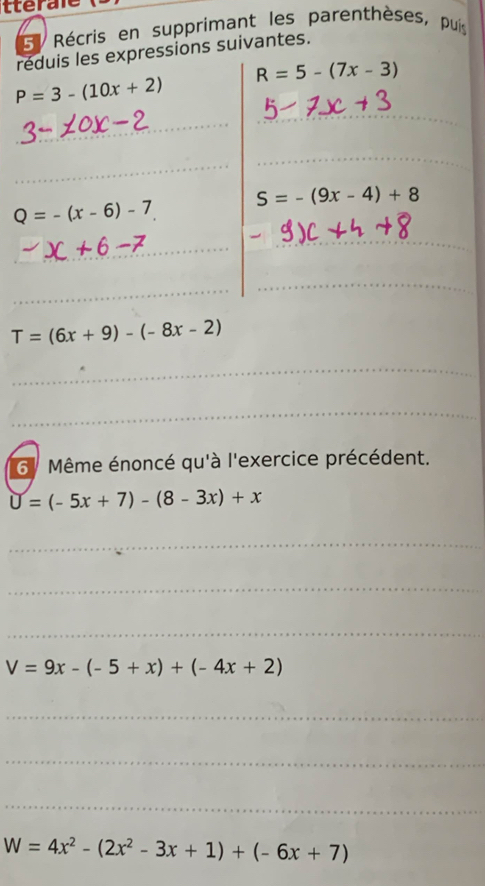 5 Récris en supprimant les parenthèses, puis
réduis les expressions suivantes.
P = 3 - (10x + 2)
3 - 10x - 2
R = 5 - (7x - 3)
5 - 7x + 3
Q = - (x - 6) - 7
- x + 6 - 7
S = - (9x - 4) + 8
- 9x + 4 + 8
T = (6x + 9) - (- 8x - 2)
6 Même énoncé qu'à l'exercice précédent.
U = (- 5x + 7) - (8 - 3x) + x
V = 9x - (- 5 + x) + (- 4x + 2)
W = 4x² - (2x² - 3x + 1) + (- 6x + 7)